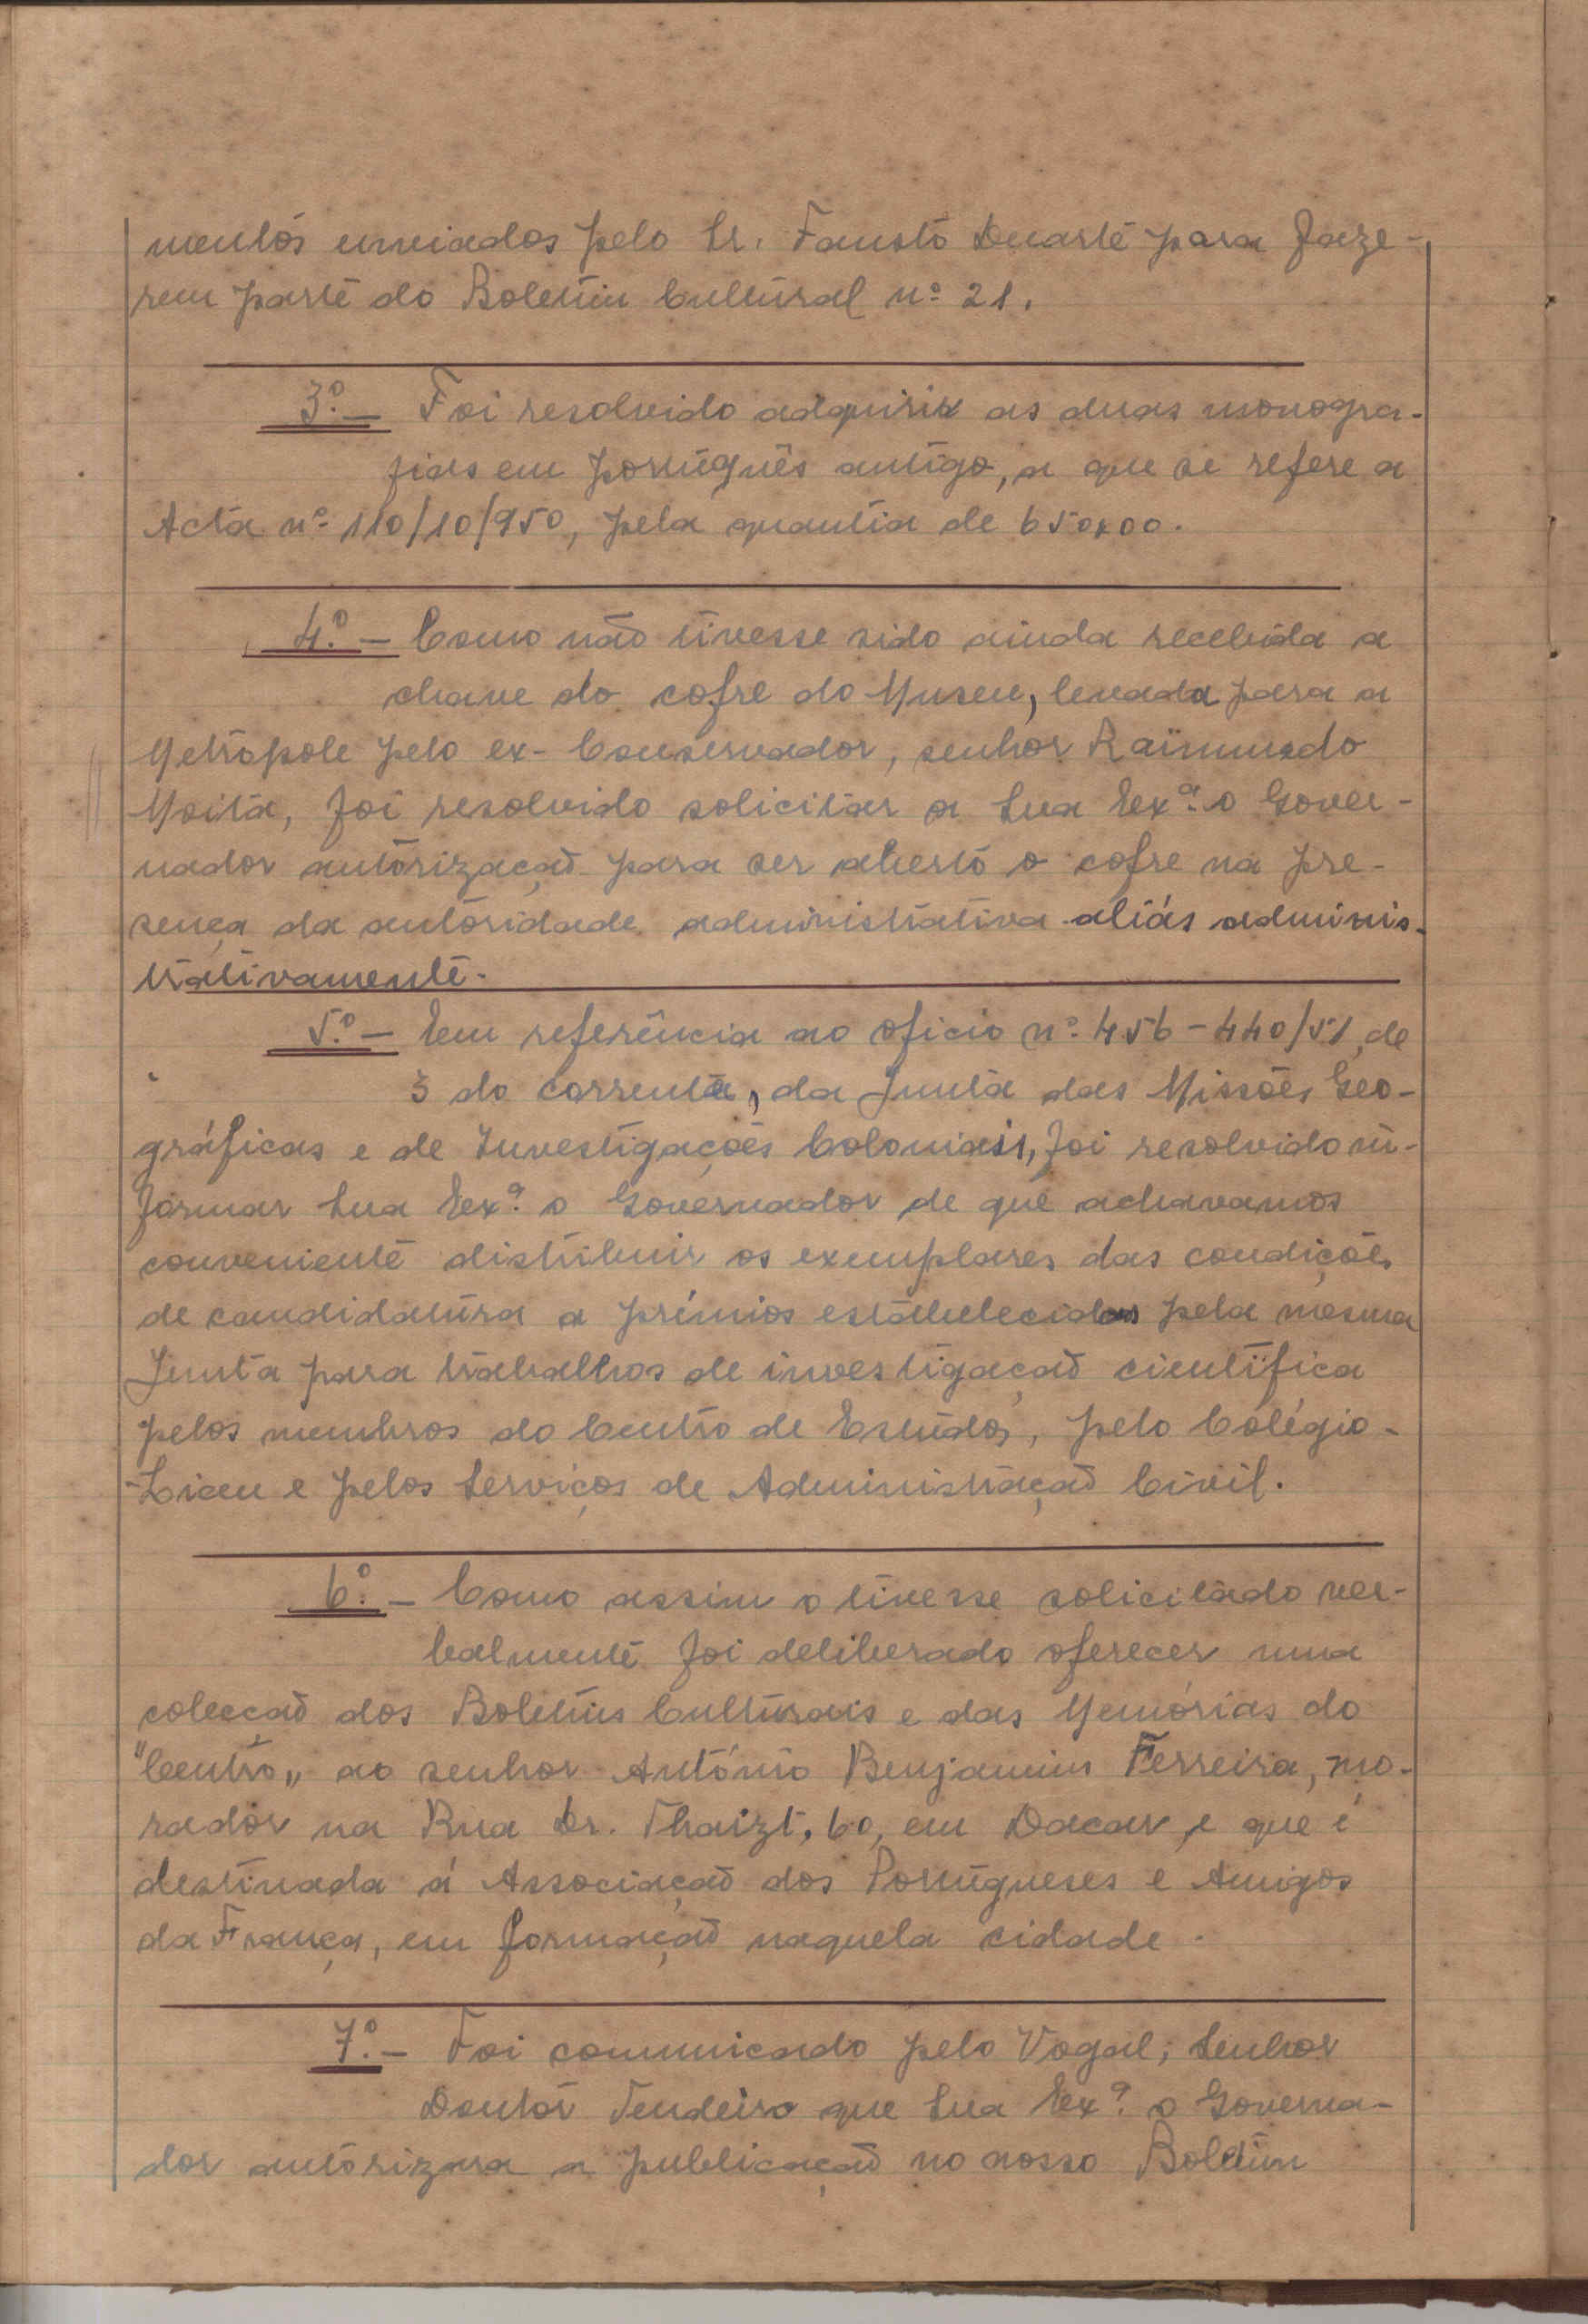 mentos enviados pelo Sr. Fausto Duarte para faze-
rem parte do Boletim Cultural nº 21.
3º.- Foi resolvido adquirir as duas monogra-
fias em português antigo, a que se refere a
Acta nº 110/10/950, pela quantia de 650$00.
4º.- Como não tivesse sido ainda recebida a
chave do cofre do Museu, levada para a
Metrópole pelo ex-Conservador, senhor Raimundo
Moita, foi resolvido solicitar a Sua Exª. o Gover-
nador autorização para ser aberto o cofre na pre-
sença da autoridade administrativa aliás adminis-
trativamente.
5º.- Em referência ao oficio nº. 456-440/51, de
3 do corrente, da Junta das Missões Geo-
gráficas e de Investigações Coloniais, foi resolvido in-
formar Sua Exª. o Governador de que achavamos
conveniente distribuir os exemplares das condições
de candidatura a prémios estabelecidos pela mesma
Junta para trabalhos de investigação cientifica
pelos membros do Centro de Estudos, pelo Colégio-
-Liceu e pelos Serviços de Administração Civil.
6º.- Como assim o tivesse solicitado ver-
balmente foi deliberado oferecer uma
colecção dos Boletins Culturais e das Memórias do
"Centro„ ao senhor António Benjamim Ferreira, mo-
rador na Rua Dr. Thaizt, 60, em Dacar, e que é
destinada á Associação dos Portugueses e Amigos
da França, em formação naquela cidade.
7º.- Foi comunicado pelo Vogal, Senhor
Doutor Tendeiro que Sua Exª. o Governa-
dor autorizara a publicação no nosso Boletim